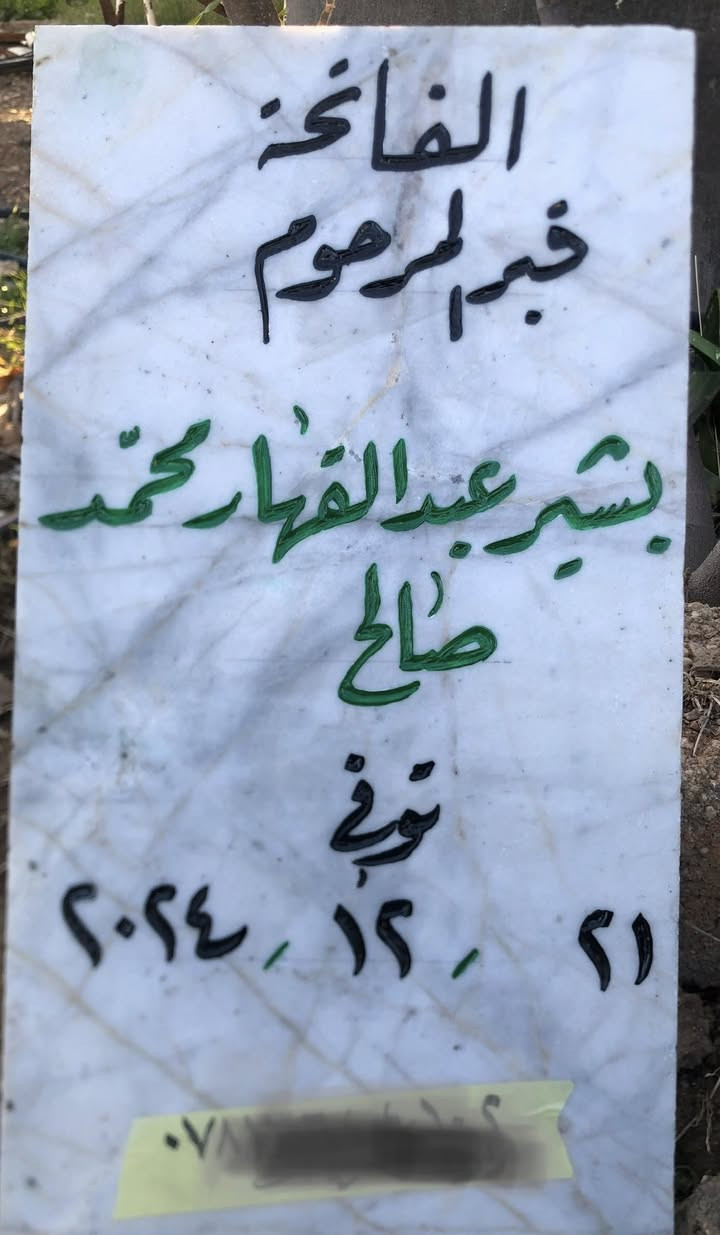 الفاتحة
قبر المرحوم
بشير عبد القهار محمّد
صالح
توفي
٢١ / ١٢ / ٢٠٢٤